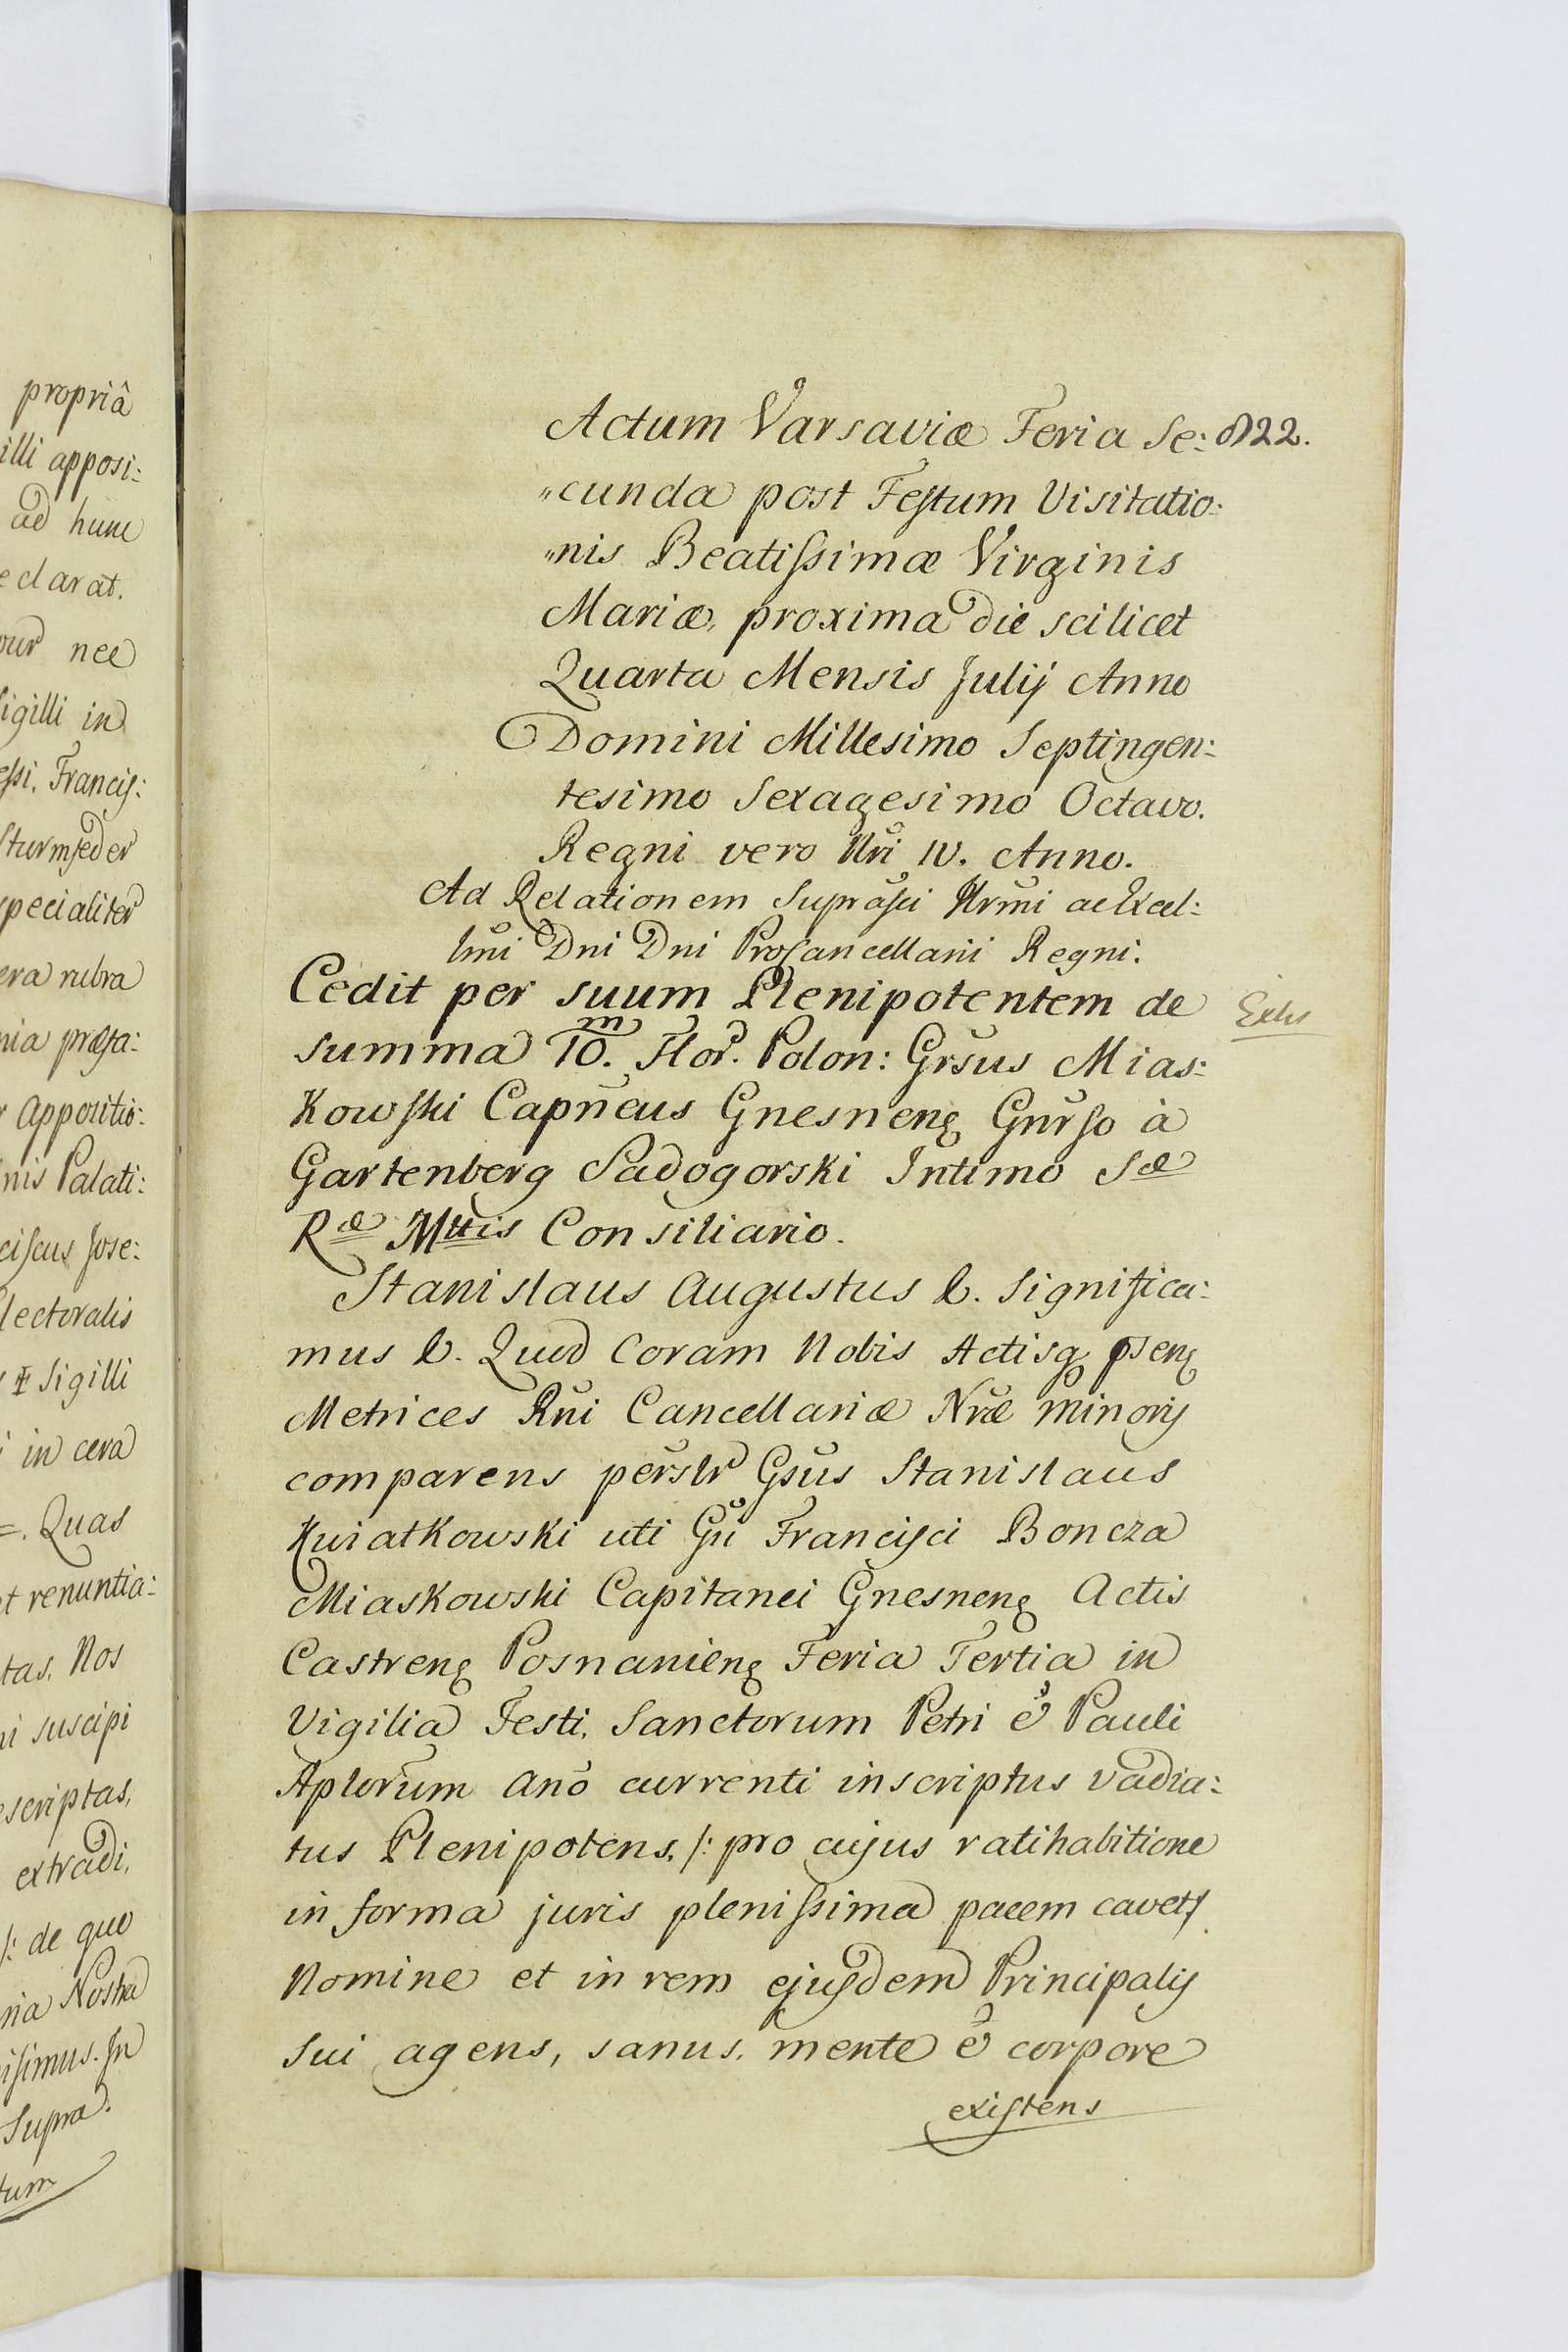 propriâ
illi apposi:
ad hunc
eclarat.
nec
igilli in
Francis:
sturmfeder
specialiter
era rubra
nia præfa:
Appositio:
nis Palati:
ciscus Jose:
lectoralis
Sigilli
in cera
Quas
et renuntia:
tas. Nos
ni suscipi
escriptas,
extradi,
/: de quo
ria Nostra
isimus. In
Supra.
tum
822.
Actum Varsaviæ Feria Se:
"cunda post Festum Visitatio:
"nis Beatissimæ Virginis
Mariæ, proxima die scilicet
Quarta Mensis Julij Anno
Domini Millesimo Septingen:
tesimo Sexagesimo Octavo.
Regni vero Nri IV. Anno.
Ad Relationem Suprasci Illrmi ac Excel:
lmi Dni Dni ProCancellarii Regni.
Cedit per suum Plenipotentem de
summa 10.m Flor. Polon: Grsus Mias:
Kowski Capneus Gnesnens Gnrso à
Gartenberg Sadogorski Intimo Sæ
Ræ Mttis Consiliario.
Extus
Stanislaus Augustus &. Significa:
mus &. Quod Coram Nobis Actisq psens
Metrices Rni Cancellariæ Nræ minoris
comparens perslr Gsus Stanislaus
Kwiatkowski uti Gu Francisci Boncza
Miaskowski Capitanei Gnesnens Actis
Castrens Posnaniens Feria Tertia in
Vigilia Festi, Sanctorum Petri & Pauli
Aplorum Ano currenti inscriptus vadia:
tus Plenipotens, /: pro cujus ratihabitione
in forma juris plenissima pacem cavet/
Nomine et in rem ejusdem Principalis
Sui agens, sanus, mente & corpore
existens